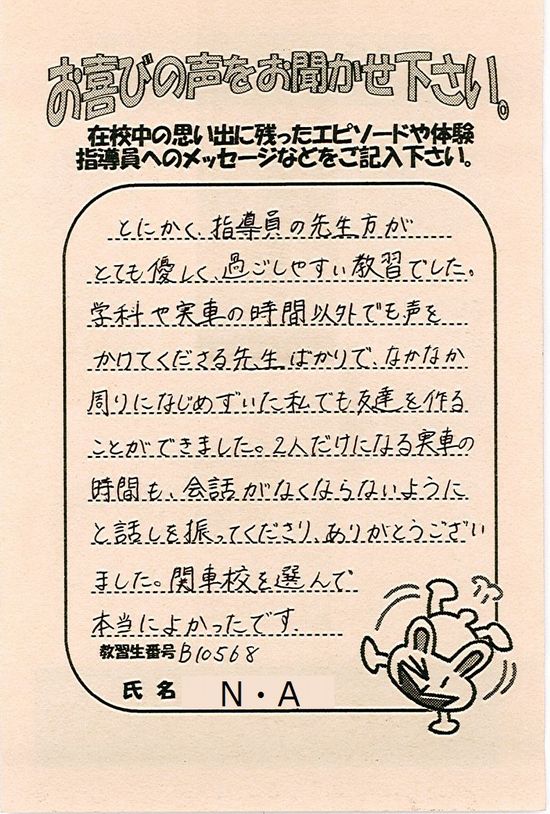 お喜びの声をお聞かせ下さい。
在校中の思い出に残ったエピソードや体験
指導員へのメッセージなどをご記入下さい。
とにかく、指導員の先生方が
とても優しく、過ごしやすい教習でした。
学科や実車の時間以外でも声を
かけてくださる先生ばかりで、なかなか
周りになじめずいた私でも友達を作る
ことができました。2人だけになる実車の
時間も、会話がなくならないように
と話しを振ってくださり、ありがとうござい
ました。関車校を選んで
本当によかったです.
教習生番号 B10568
氏名 N・A